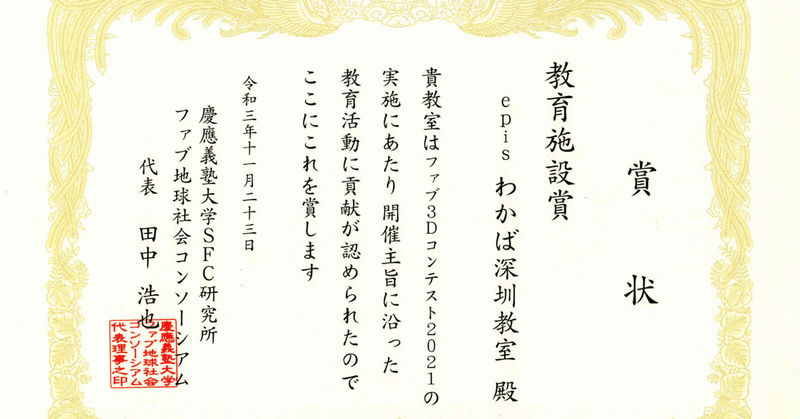 賞状
教育施設賞
epis わかば深圳教室 殿
貴教室はファブ3Dコンテスト2021の
実施にあたり 開催主旨に沿った
教育活動に貢献が認められたので
ここにこれを賞します
令和三年十一月二十三日
慶應義塾大学SFC研究所
ファブ地球社会コンソーシアム
代表 田中 浩也
慶應義塾大学
ファブ地球社会
コンソーシアム
代表理事之印